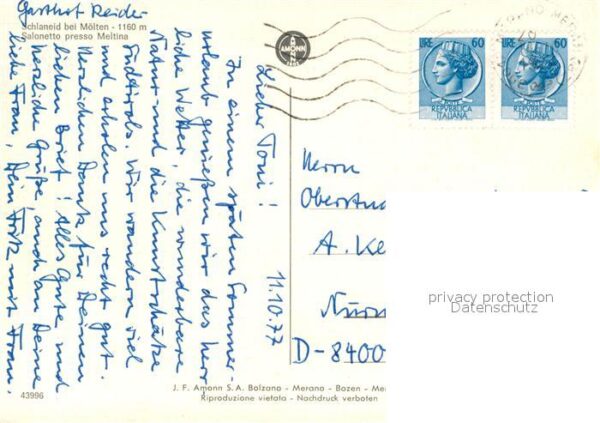 Gasthof Reider
Schlaneid bei Mölten - 1160 m
Salonetto presso Meltina
AMONN
LIRE 60
POSTE
REPUBBLICA
ITALIANA
LIRE 60
POSTE
REPUBBLICA
ITALIANA
MERANO MERAN
11.10.77
Lieber Toni!
In einem späten Sommer-
urlaub genießen wir das herr
liche Wetter, die wunderbare
Natur und die Kunstschätze
Südtirols. Wir wandern viel
und erholen uns recht gut.
Herzlichen Dank für Deinen
lieben Brief! Alles Gute und
herzliche Grüße, auch an Deine
liebe Frau, Dein Fritz mit Frau.
Herrn
Oberstu
A. Ke
Nürn
D-8400
privacy protection
Datenschutz
J. F. Amonn S.A. Bolzano - Merano - Bozen - Me
Riproduzione vietata - Nachdruck verboten
43996